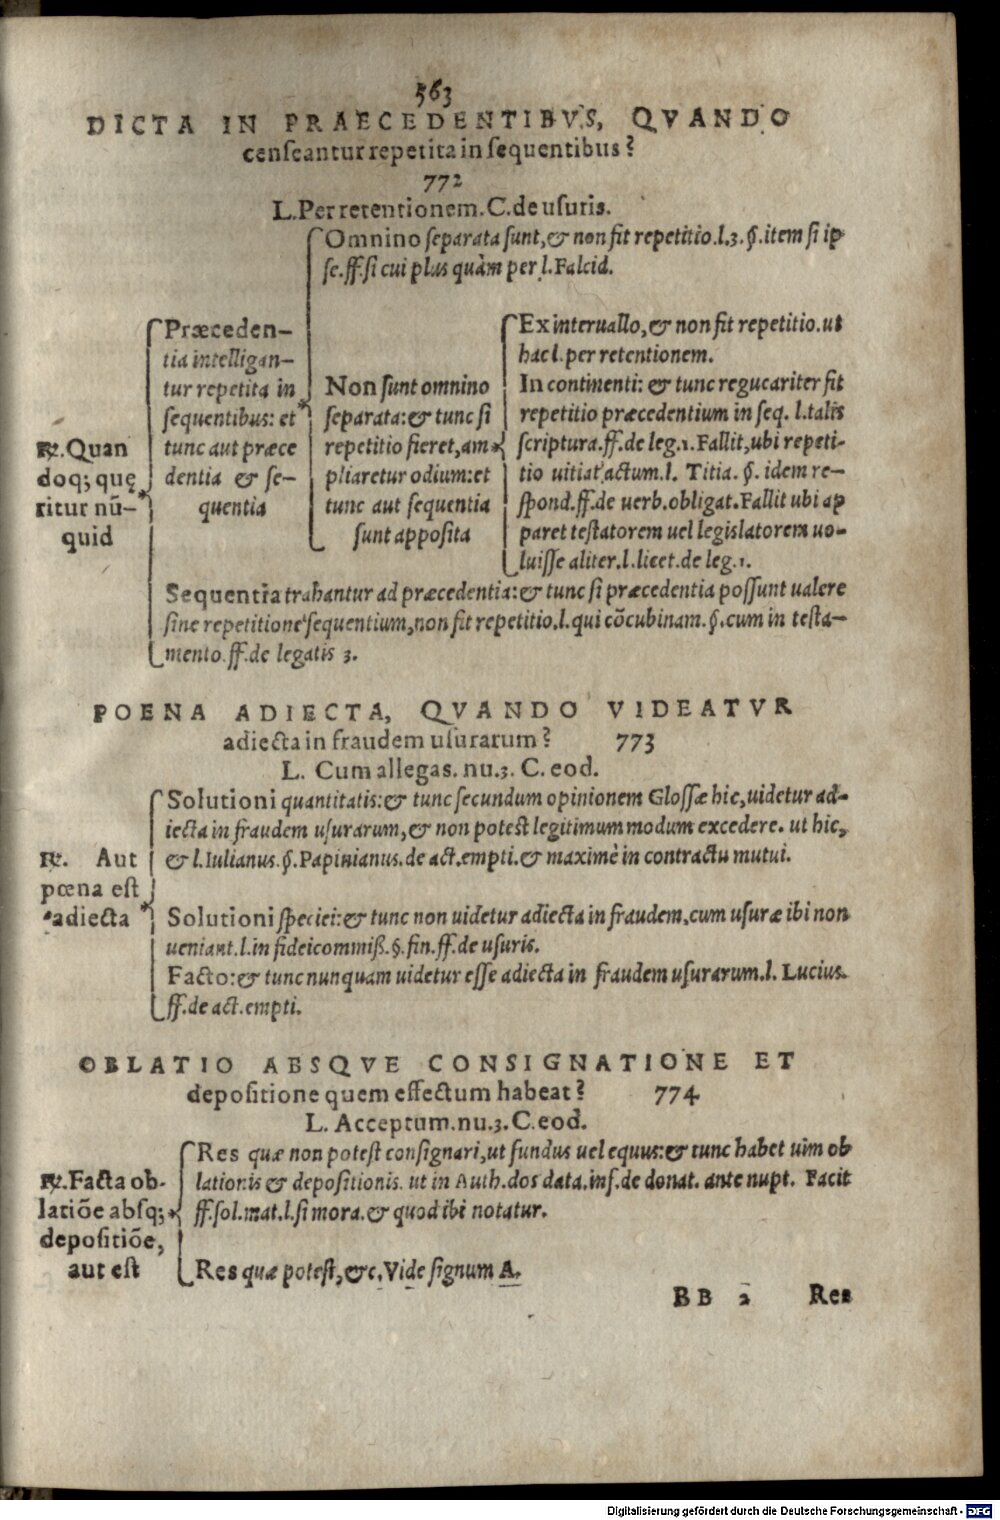 563
DICTA IN PRAECEDENTIBVS, QVANDO
censeantur repetita in sequentibus?
772
L. Per retentionem. C. de usuris.
Omnino separata sunt, & non fit repetitio. l. 3. §. item si ip
se. ff. si cui plus quàm per l. Falcid.
℞. Quan
doq; quę
ritur nū-
quid
Præceden-
tia intelligan-
tur repetita in
sequentibus: et
tunc aut præce
dentia & se-
quentia
Non sunt omnino
separata: & tunc si
repetitio fieret, am
pliaretur odium: et
tunc aut sequentia
sunt apposita
Ex interuallo, & non fit repetitio. ut
hac l. per retentionem.
In continenti: & tunc regucariter fit
repetitio præcedentium in seq. l. talis
scriptura. ff. de leg. 1. Fallit, ubi repeti-
tio uitiat actum. l. Titia. §. idem re-
spond. ff. de uerb. obligat. Fallit ubi ap
paret testatorem uel legislatorem uo-
luisse aliter. l. licet. de leg. 1.
Sequentia trahantur ad præcedentia: & tunc si præcedentia possunt ualere
sine repetitione sequentium, non fit repetitio. l. qui cōcubinam. §. cum in testa-
mento. ff. de legatis 3.
POENA ADIECTA, QVANDO VIDEATVR
adiecta in fraudem usurarum? 773
L. Cum allegas. nu. 3. C. eod.
℞. Aut
pœna est
adiecta
Solutioni quantitatis: & tunc secundum opinionem Glossæ hic, uidetur ad-
iecta in fraudem usurarum, & non potest legitimum modum excedere. ut hic,
& l. Iulianus. §. Papinianus. de act. empti. & maximè in contractu mutui.
Solutioni speciei: & tunc non uidetur adiecta in fraudem, cum usuræ ibi non
ueniant. l. in fideicommiß. §. fin. ff. de usuris.
Facto: & tunc nunquam uidetur esse adiecta in fraudem usurarum. l. Lucius.
ff. de act. empti.
OBLATIO ABSQVE CONSIGNATIONE ET
depositione quem effectum habeat? 774
L. Acceptum. nu. 3. C. eod.
℞. Facta ob-
latiōe absq;
depositiōe,
aut est
Res quæ non potest consignari, ut fundus uel equus: & tunc habet uim ob
lationis & depositionis. ut in Auth. dos data. inf. de donat. ante nupt. Facit
ff. sol. mat. l. si mora. & quod ibi notatur.
Res quæ potest, &c. Vide signum A.
BB 2 Res
Digitalisierung gefördert durch die Deutsche Forschungsgemeinschaft - DFG